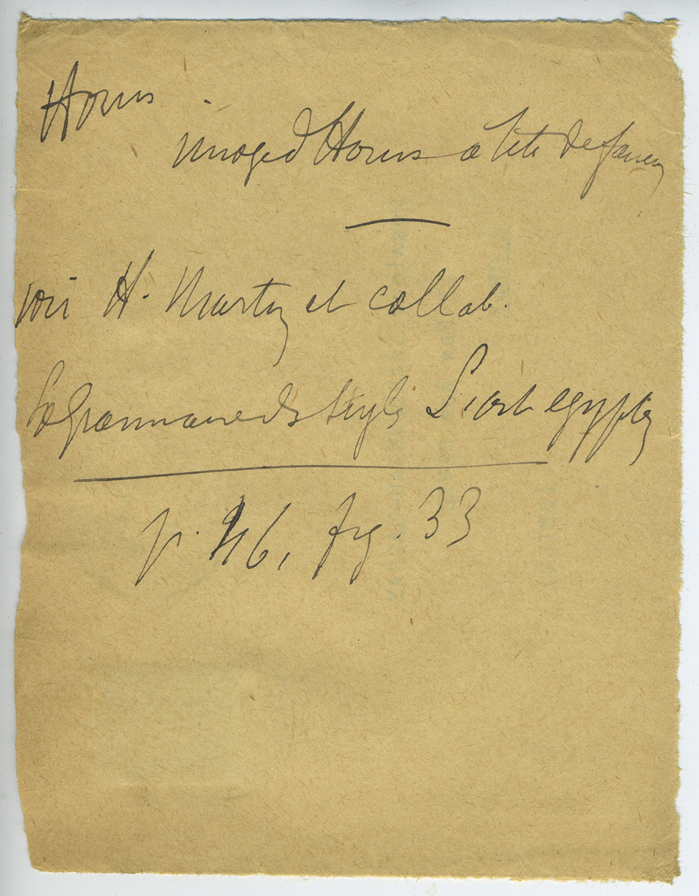 Horus
image d'Horus à tête de faucon
voir H. Martin et collab.
La grammaire des styles L'art egyptien
p. 46, fig. 33